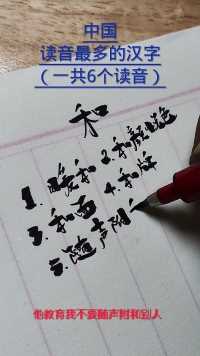 中国
读音最多的汉字
（一共6个读音）
和
1.暖和 2.和颜悦色
3.和面 4.和牌
5.随声附
他教育我不要随声附和别人